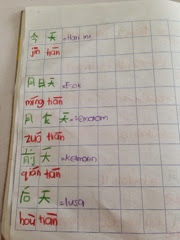 今 天 =Hari ini
jīn tiān
明天 =Esok
míng tiān
昨 天 =semalam
zuó tiān
前 天 =kelmarin
qián tiān
后 天 =lusa
hòu tiān